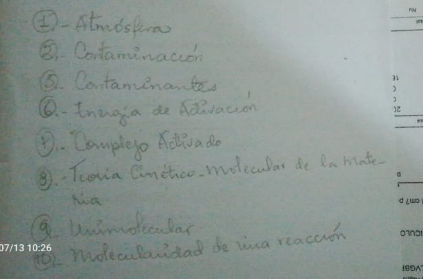 ①.- Atmósfera
②.- Contaminación
⑤.- Contaminantes
⑥.- Energía de Activación
⑦.- Complejo Activado
⑧.- Teoría Cinético-molecular de la mate-
ria
⑨.- Unimolecular
⑩.- Molecularidad de una reacción
07/13 10:26